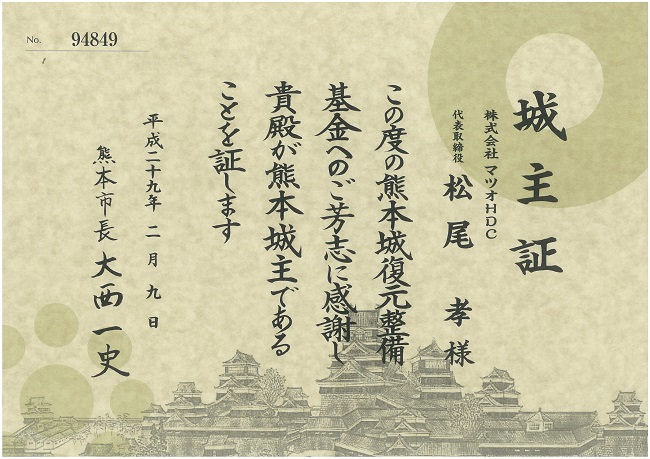 No. 94849
城主証
株式会社 マツオHDC
代表取締役 松尾 孝 様
この度の熊本城復元整備
基金へのご芳志に感謝し
貴殿が熊本城主である
ことを証します
平成二十九年 二月 九日
熊本市長 大西一史